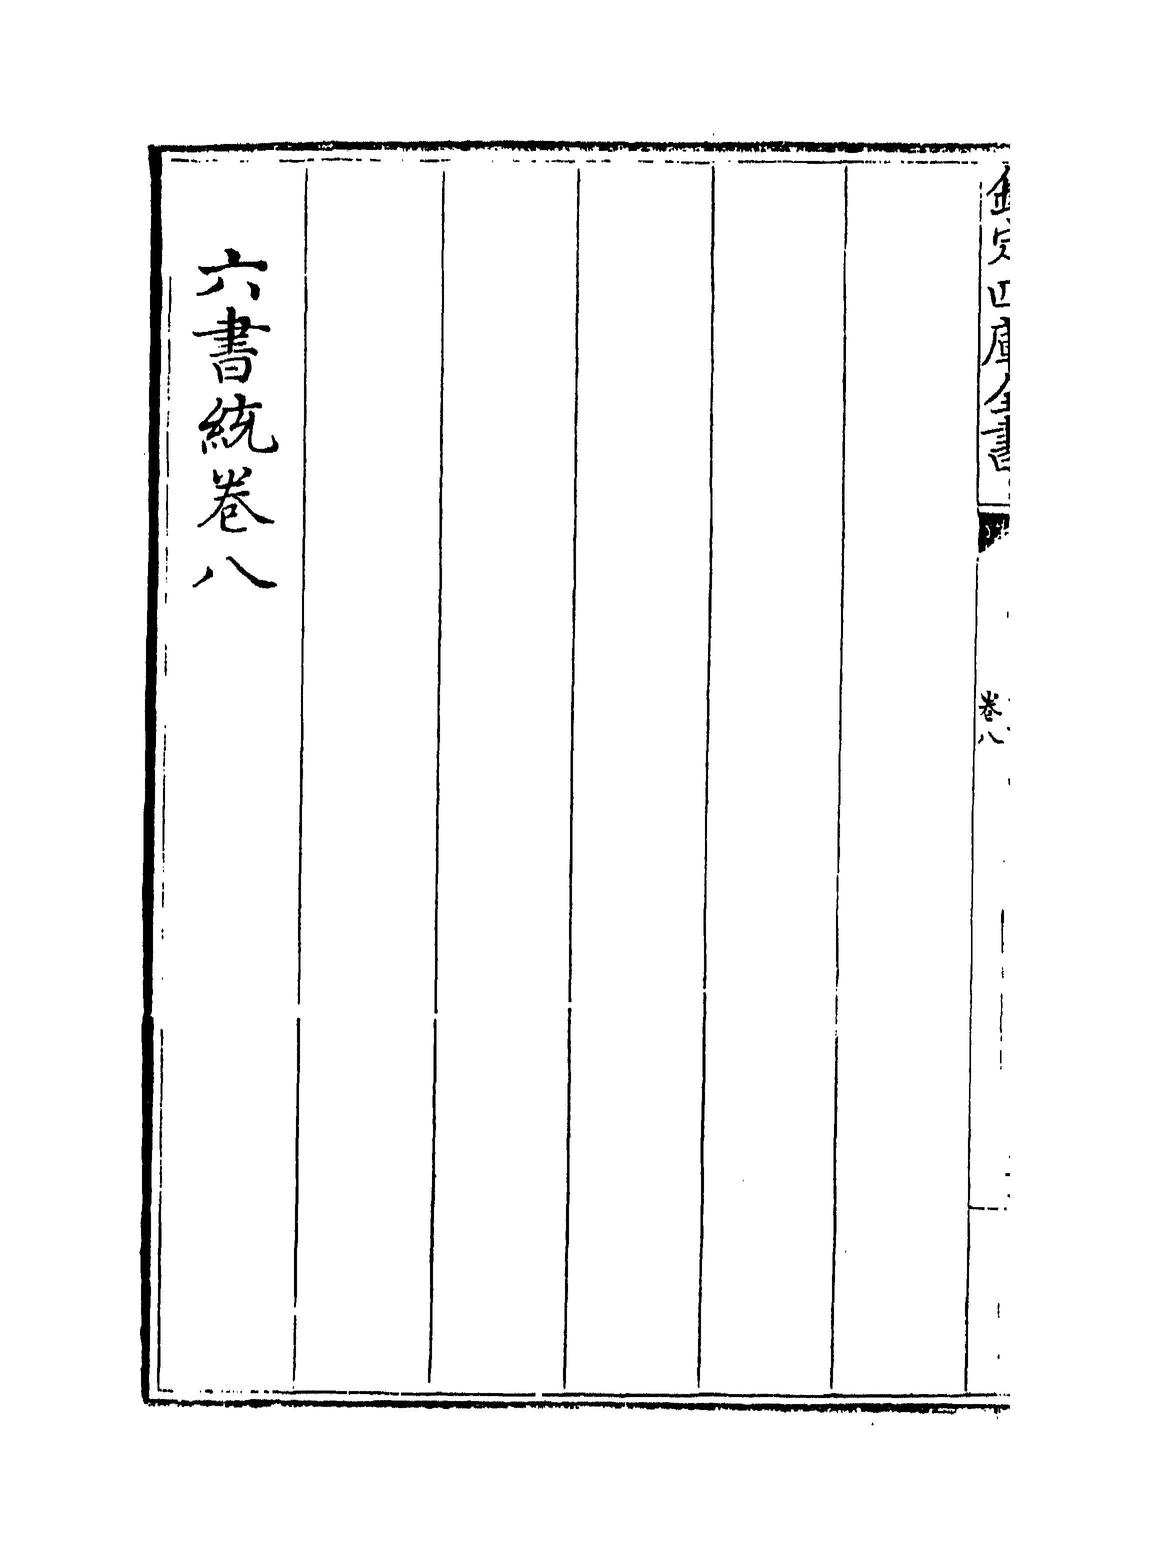 欽定四庫全書
卷八
六書統卷八